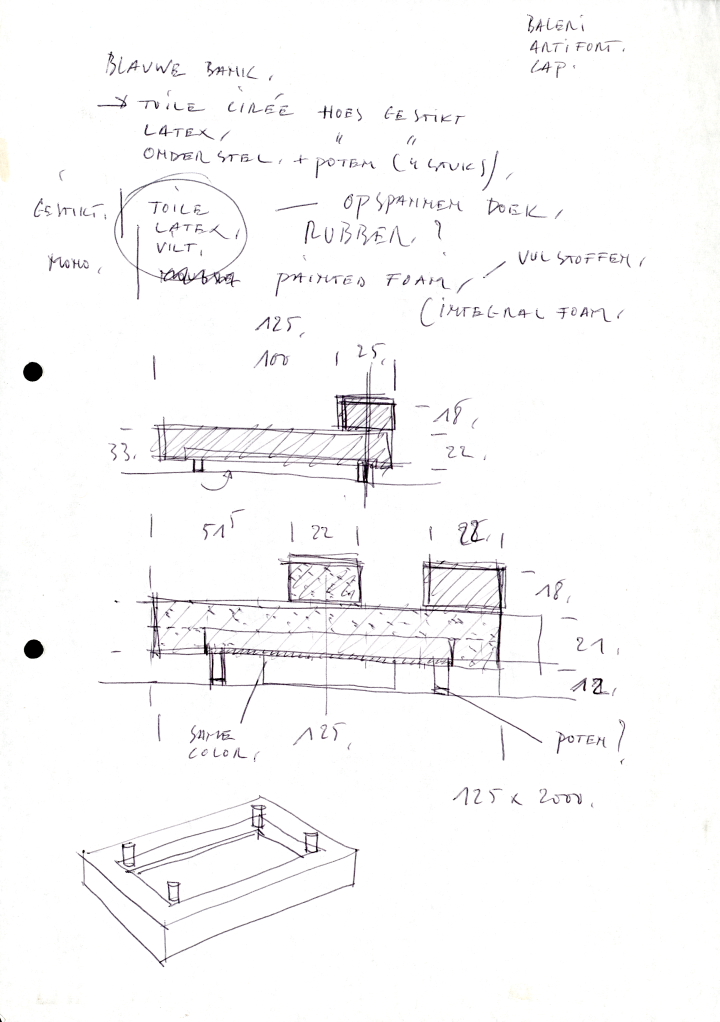 BALERI
ARTIFORT.
CAP.
BLAUWE BANK,
→ TOILE CIRÉE HOES GESTIKT
LATEX, " "
ONDERSTEL, + POTEN (4 STUKS),
GESTIKT,
MONO,
TOILE
LATEX,
VILT,
— OPSPANNEN DOEK,
RUBBER, ?
PAINTED FOAM,
VULSTOFFEN,
(INTEGRAL FOAM,
125,
100 25,
18,
33. 22,
51⁵ 22 22,
18,
21,
12,
SAME
COLOR,
125,
POTEN?
125 x 2000.